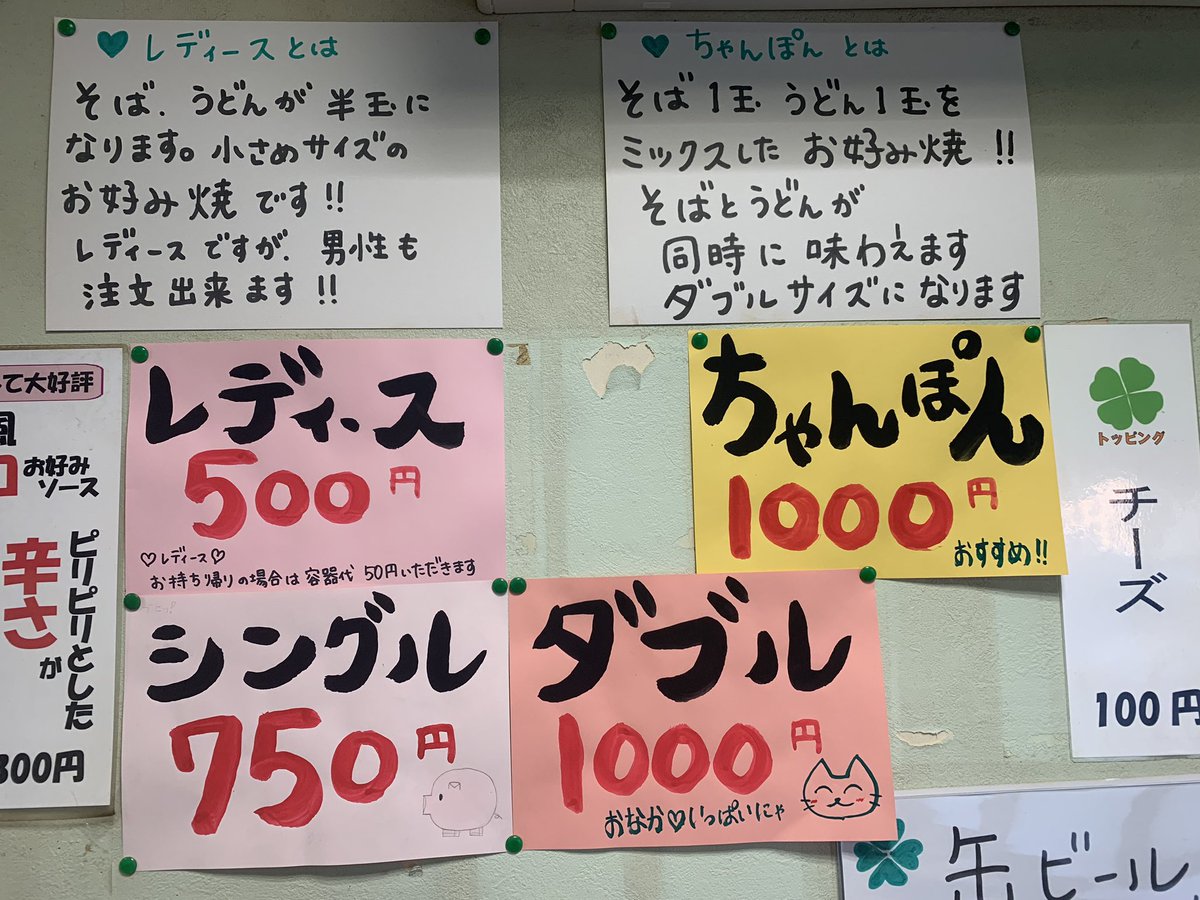 ♥ レディースとは
そば、うどんが 半玉に
なります。小さめサイズの
お好み焼です!!
レディースですが、男性も
注文出来ます!!
♥ ちゃんぽんとは
そば1玉 うどん1玉を
ミックスした お好み焼!!
そばとうどんが
同時に味わえます
ダブルサイズになります
て大好評
風
お好み
ソース
ピリピリとした
辛さが
300円
レディース
500円
♡レディース♡
お持ち帰りの場合は容器代 50円いただきます
ちゃんぽん
1000円
おすすめ!!
シングル
750円
ダブル
1000円
おなか♡いっぱいにゃ
トッピング
チーズ
100円
缶ビール